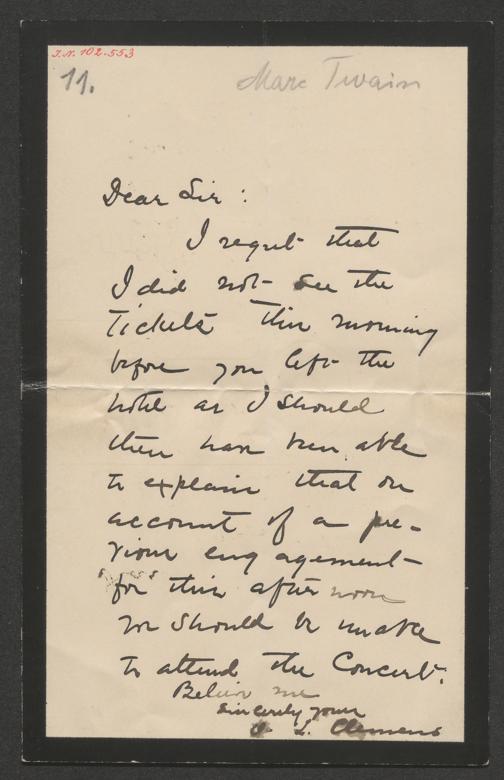 I.N. 102.553
11.
Marc Twain
Dear Sir :
I regret that
I did not see the
Tickets this morning
before you left the
hotel as I should
then have been able
to explain that on
account of a pre-
vious engagement
for this afternoon
we should be unable
to attend the Concert.
Believe me
Sincerely yours
L. Clemens